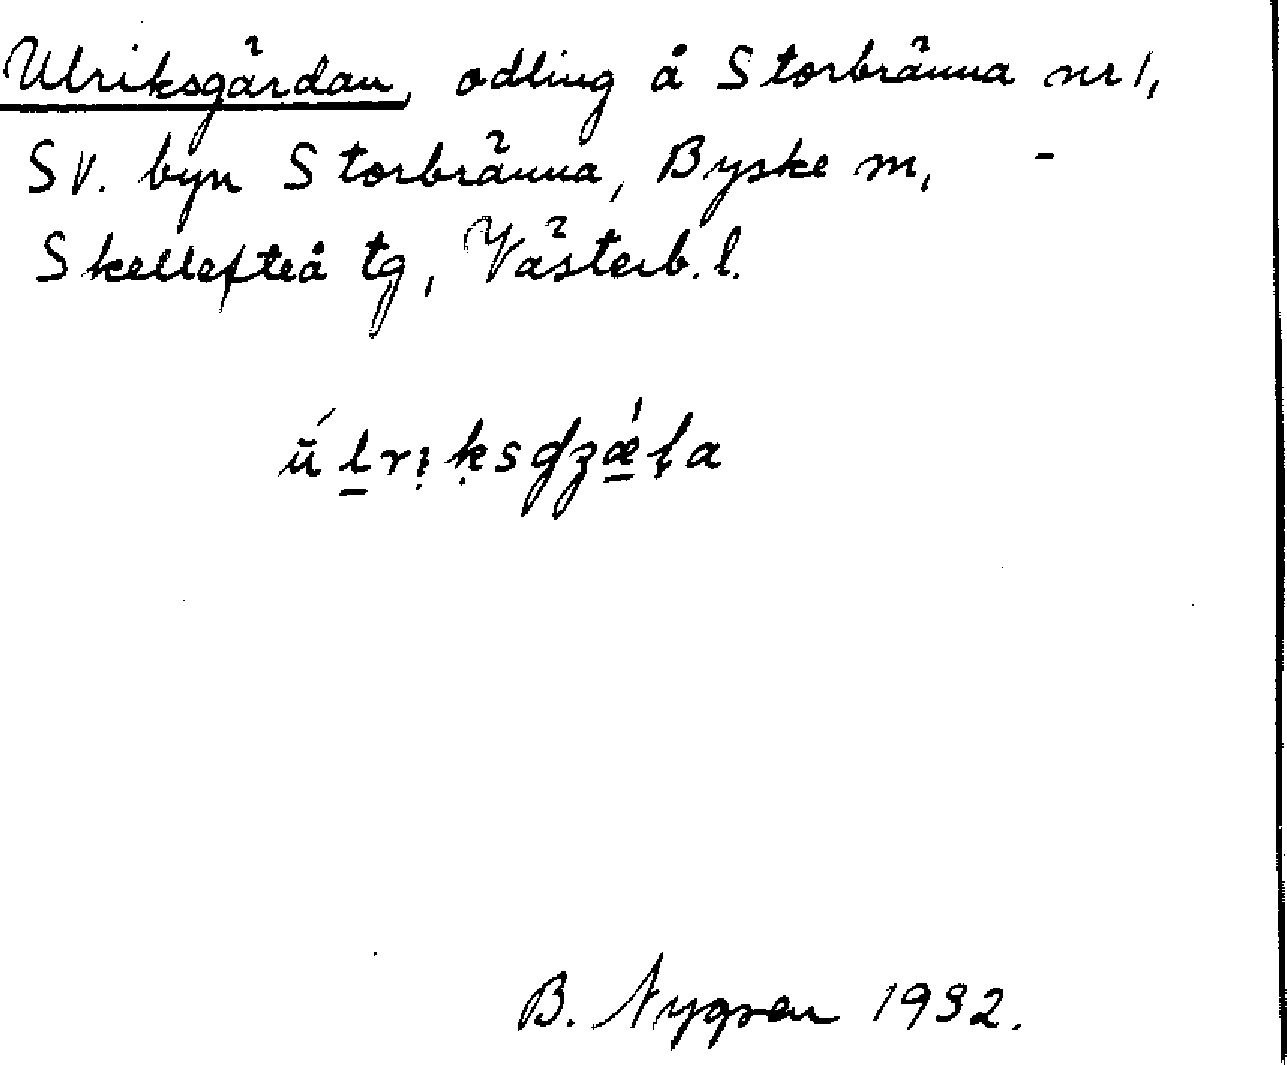 Ulriksgärdan, odling å Storbränna nr 1,
SV. byn Storbränna, Byske sn, -
Skellefteå tg, Västerb. l.
B. Nygren 1932.